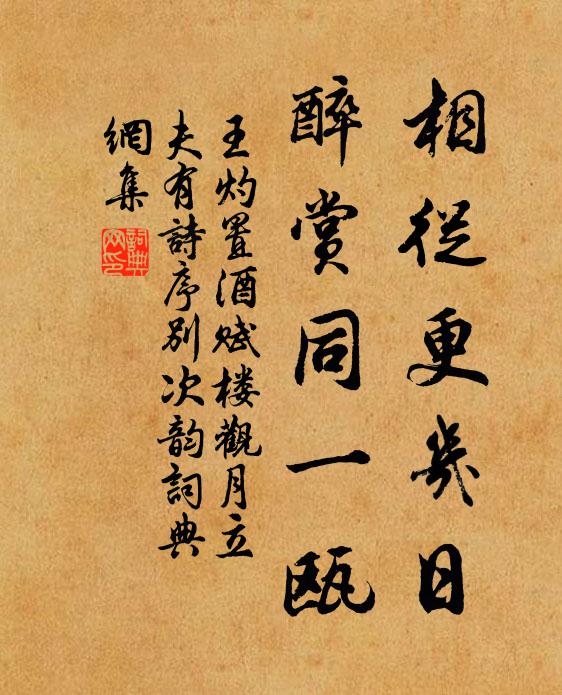 相從更幾日
醉賞同一甌
王灼置酒賦楼觀月立
夫有詩序别次韵詞典
網集
詞典網印